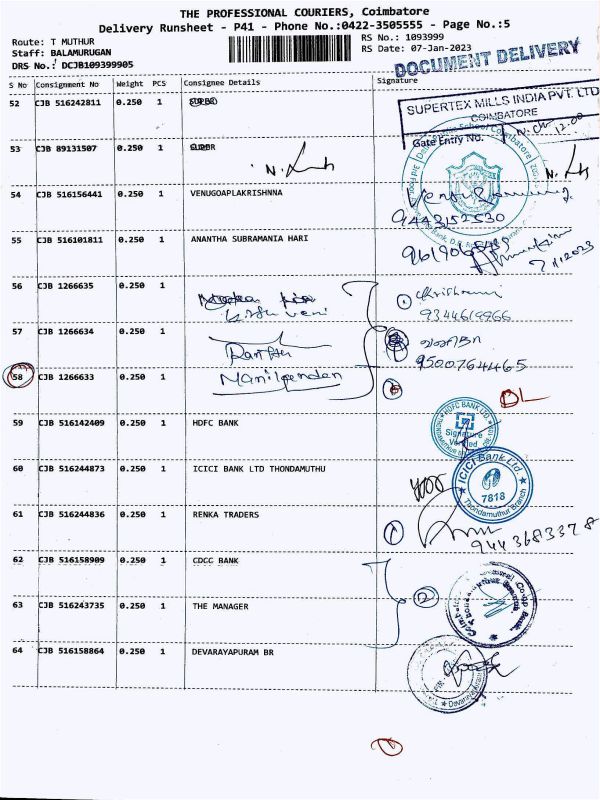 THE PROFESSIONAL COURIERS, Coimbatore
Delivery Runsheet - P41 - Phone No.:0422-3505555 - Page No.:5
Route: T MUTHUR
Staff: BALAMURUGAN
DRS No.: DCJB109399905
RS No.: 1093999
RS Date: 07-Jan-2023
DOCUMENT DELIVERY
S No Consignment No Weight PCS Consignee Details Signature
52 CJB 516242811 0.250 1
SUPERTEX MILLS INDIA PVT. LTD
COIMBATORE
Gate Entry No. 12.00
53 CJB 89131507 0.250 1
54 CJB 516156441 0.250 1 VENUGOAPLAKRISHNNA
9443152530
55 CJB 516101811 0.250 1 ANANTHA SUBRAMANIA HARI
7/1/2023
56 CJB 1266635 0.250 1
9344619966
57 CJB 1266634 0.250 1
9500764465
58 CJB 1266633 0.250 1 Manikandan
DL
59 CJB 516142409 0.250 1 HDFC BANK
HDFC BANK LTD.
Signature
Verified
60 CJB 516244873 0.250 1 ICICI BANK LTD THONDAMUTHU
ICICI Bank Ltd
7818
Thondamuthur Branch
61 CJB 516244836 0.250 1 RENKA TRADERS
1
9443683378
62 CJB 516158909 0.250 1 CDCC BANK
2
63 CJB 516243735 0.250 1 THE MANAGER
64 CJB 516158864 0.250 1 DEVARAYAPURAM BR